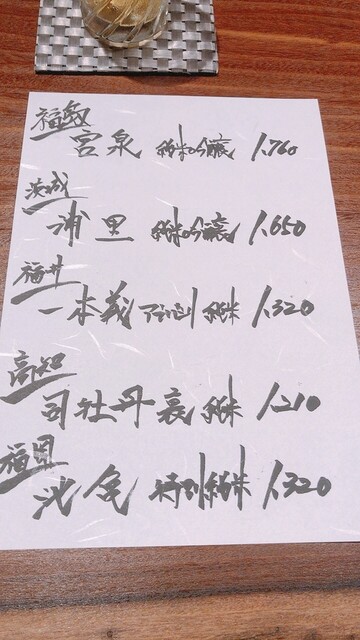 福島
宮泉 純米吟醸 1,760
茨城
浦里 純米吟醸 1,650
福井
一本義 純米 1,320
高知
司牡丹 裏 純米 1,210
福岡
池亀 特別純米 1,320